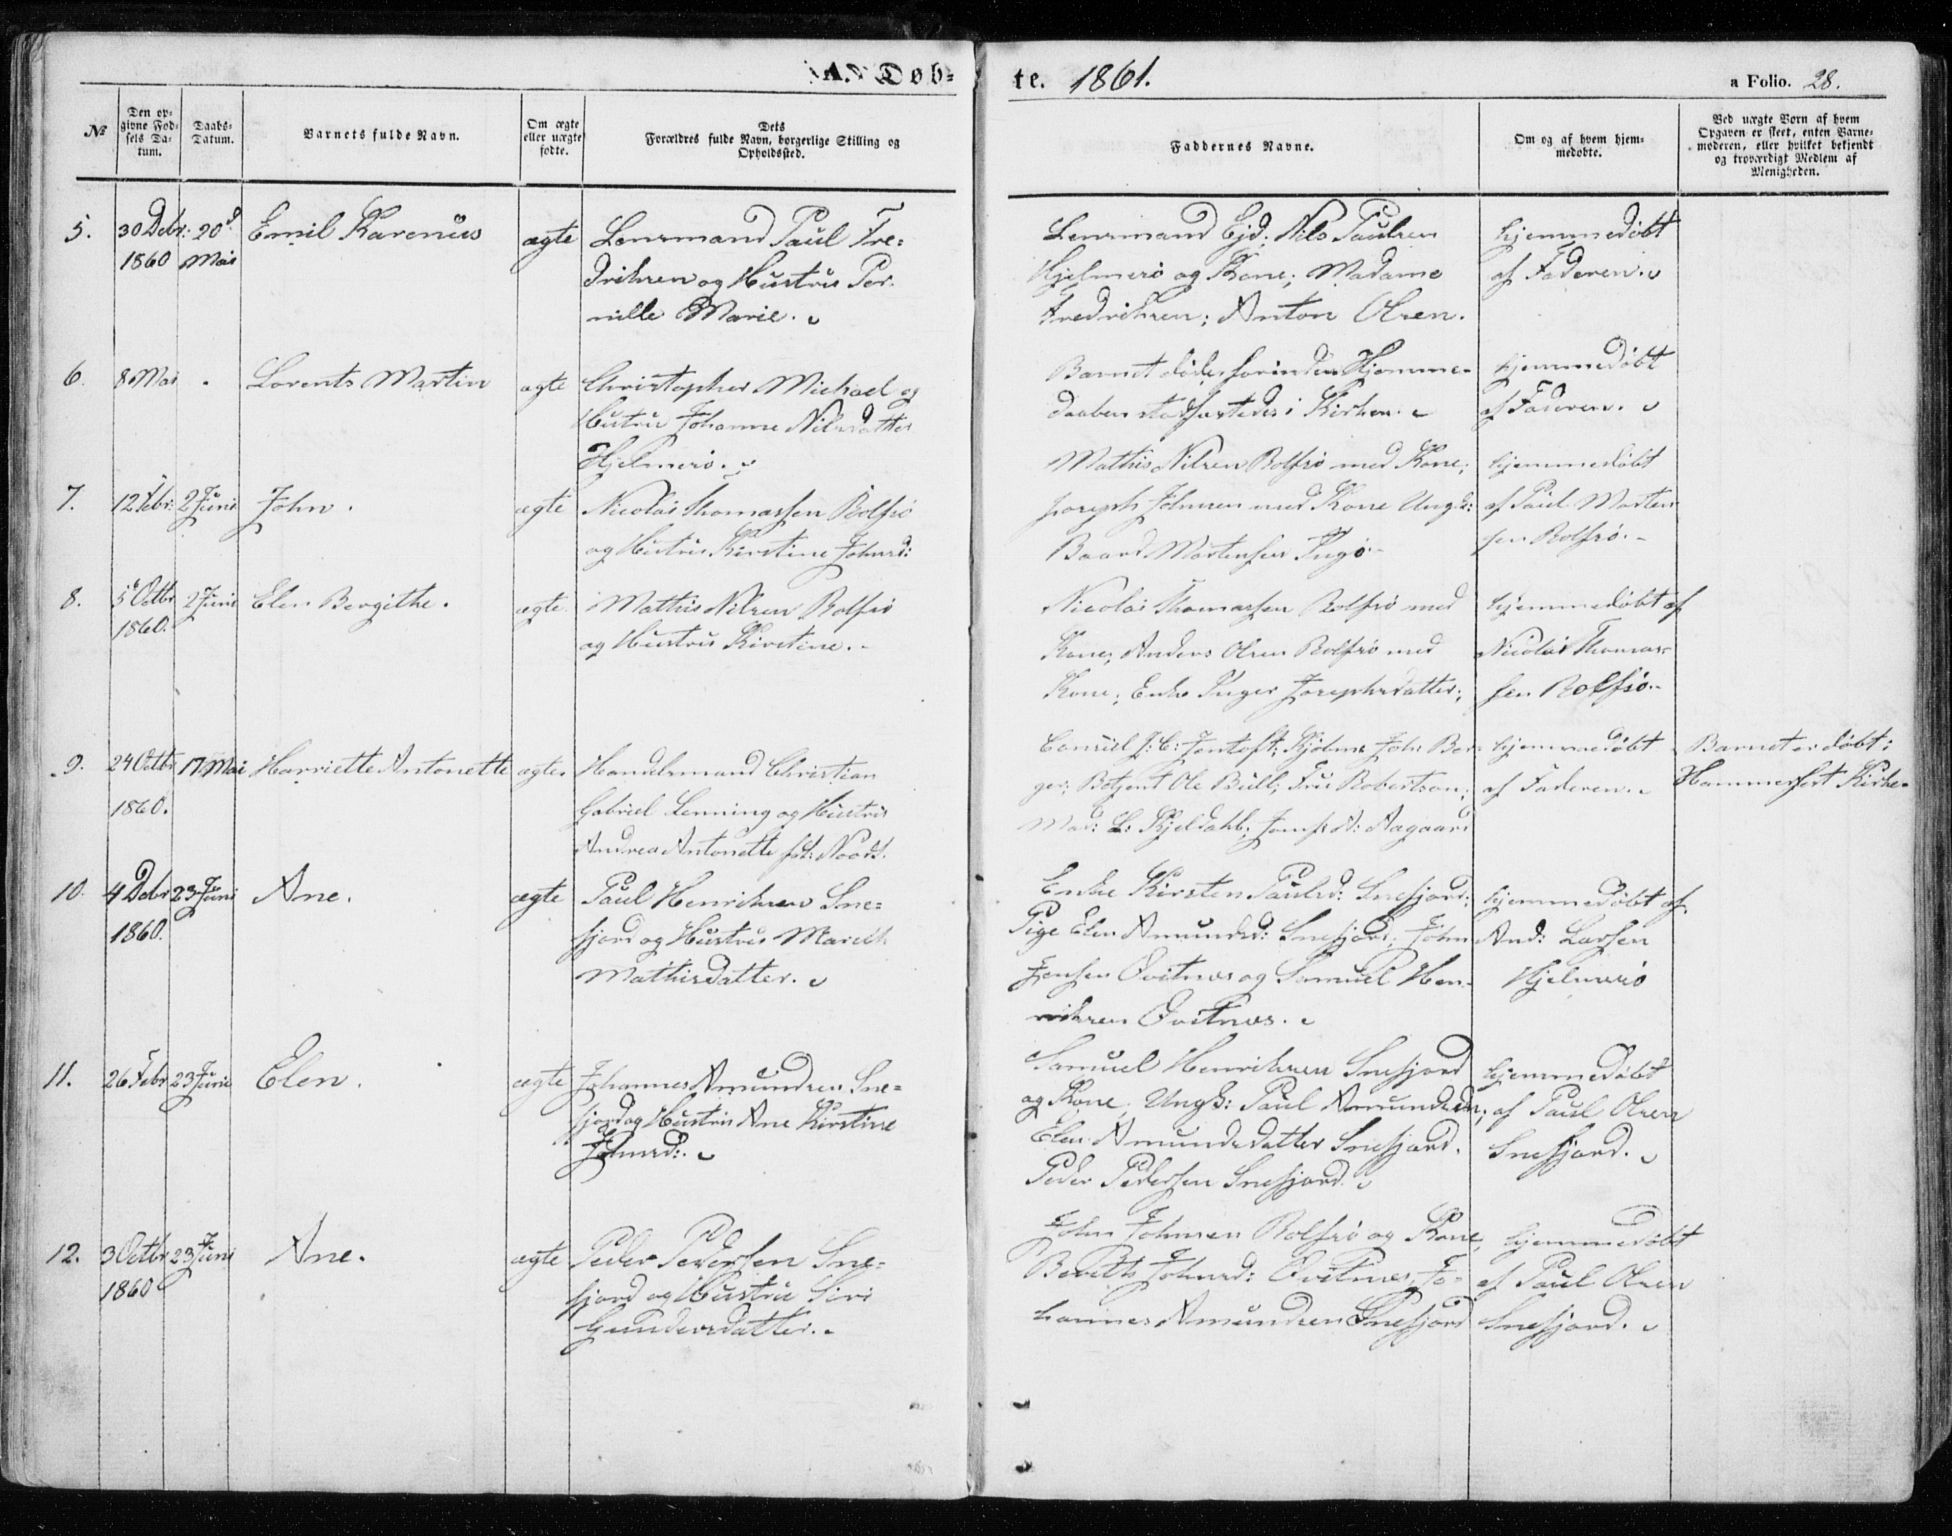 A. Døb-
te. 1861.
a Folio. 28.
№
Den op-
givne Fød-
sels Da-
tum.
Daabs-
Datum.
Barnets fulde Navn.
Om ægte
eller uægte
fødte.
Dets
Forældres fulde Navn, borgerlige Stilling og
Opholdssted.
Faddernes Navne.
Om og af hvem hjem-
medøbte.
Ved uægte Børn af hvem
Opgaven er skeet, enten Barne-
moderen, eller hvilket bekjendt
og troværdigt Medlem af
Menigheden.
5.
30 Debr:
1860
20d
Mai
Emil Karenius
ægte
Lensmand Paul Fre-
driksen og Hustru Per-
nille Marie.
Lensmand Ejd: Nils Paulsen
Hjelmsø og Kone; Madame
Fredriksen; Anton Olsen.
hjemmedøbt
af Faderen.
6.
8 Mai
Lorents Martin
ægte
Christopher Michael og
Hustru Johanne Nilsdatter
Hjelmsø.
Barnet døde forinden Hjemme-
daaben stadfæstedes i Kirken.
hjemmedøbt
af Faderen.
7.
12 Febr:
2 Juni
John.
ægte
Nicolai Thomassen Rolfsø
og Hustru Kirstine Johnsd:
Mathis Nilsen Rolfsø med Kone;
Joseph Johnsen med Kone Ungk:
Baard Mortensen Ingø.
hjemmedøbt
af Paul Morten
sen Rolfsø.
8.
5 Octbr
1860.
2 Juni
Elen Bergithe.
ægte
Mathis Nilsen Rolfsø
og Hustru Kirstine.
Nicolai Thomassen Rolfsø med
Kone; Anders Olsen Rolfsø med
Kone; Enke Inger Josephsdatter;
hjemmedøbt af
Nicolai Thomas-
sen Rolfsø.
9.
24 Octbr
1860.
17 Mai
Harriette Antonette
ægte
Handelsmand Christian
Gabriel Lenning og Hustru
Andrea Antonette
Consul J: C: Jentoft; Kjøbm: John Ber-
ger; Ole Bull; Fru Robertson;
Mad: L: Kjeldahl; Jomf: A: Aagaard
hjemmedøbt
af Faderen.
Barnet er døbt i
Hammerfest Kirke.
10.
4 Debr
1860.
23 Juni
Ane.
ægte
Paul Henriksen Sne-
fjord og Hustru Mareth
Mathisdatter.
Enke Kirsten Paulsd: Snefjord;
Pige Elen Amundsd: Snefjord; John
Jensen Qvitnæs og Samuel Hen-
riksen Qvitnæs.
hjemmedøbt af
And: Larsen
Hjelmsø
11.
26 Febr
23 Juni
Elen.
ægte
Johannes Amundsen Sne-
fjord og Hustru Ane Kirstine
Johnsd:
Samuel Henriksen Snefjord
og Kone; Ungk: Paul Amundsen;
Elen Amundsdatter Snefjord.
Peder Pedersen Snefjord.
hjemmedøbt
af Paul Olsen
Snefjord.
12.
3 Octbr
1860
23 Juni
Ane.
ægte
Peder Pedersen Sne-
fjord og Hustru Siri
Gundersdatter.
John Johnsen Rolfsø og Kone
Bereth Johnsd: Qvitnæs; Jo-
hannes Amundsen Snefjord
hjemmedøbt
af Paul Olsen
Snefjord.